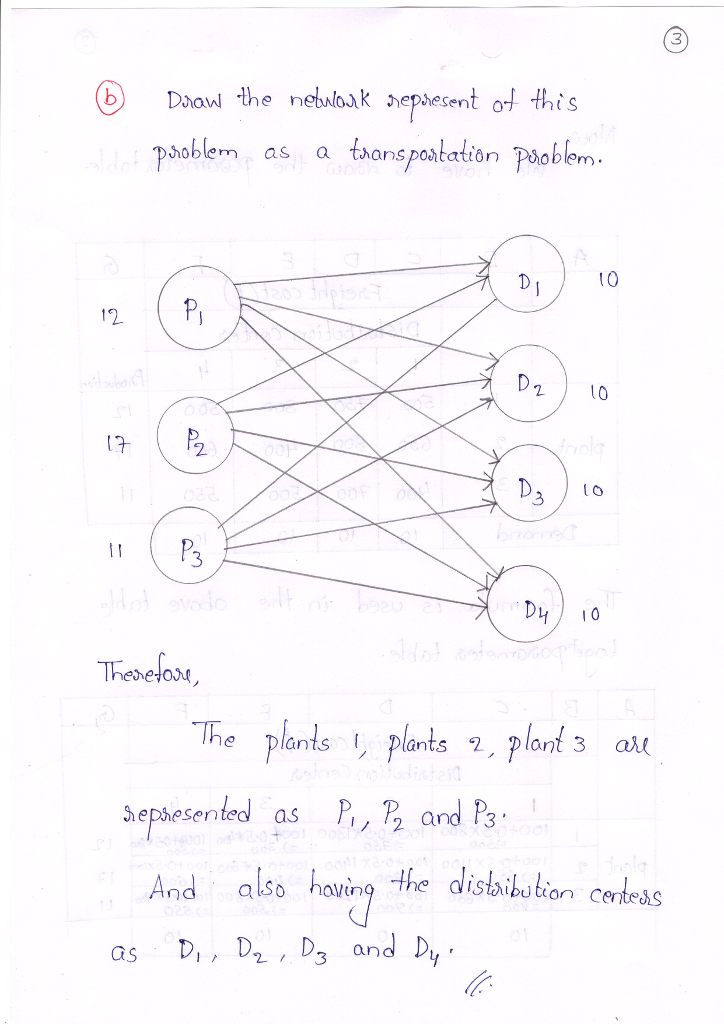 3
b Draw the network represent of this
problem as a transportation problem.
D1 10
12 P1
D2 10
17 P2
D3 10
11 P3
D4 10
Therefore,
The plants 1, plants 2, plant 3 are
represented as P1, P2 and P3.
And also having the distribution centers
as D1, D2, D3 and D4.